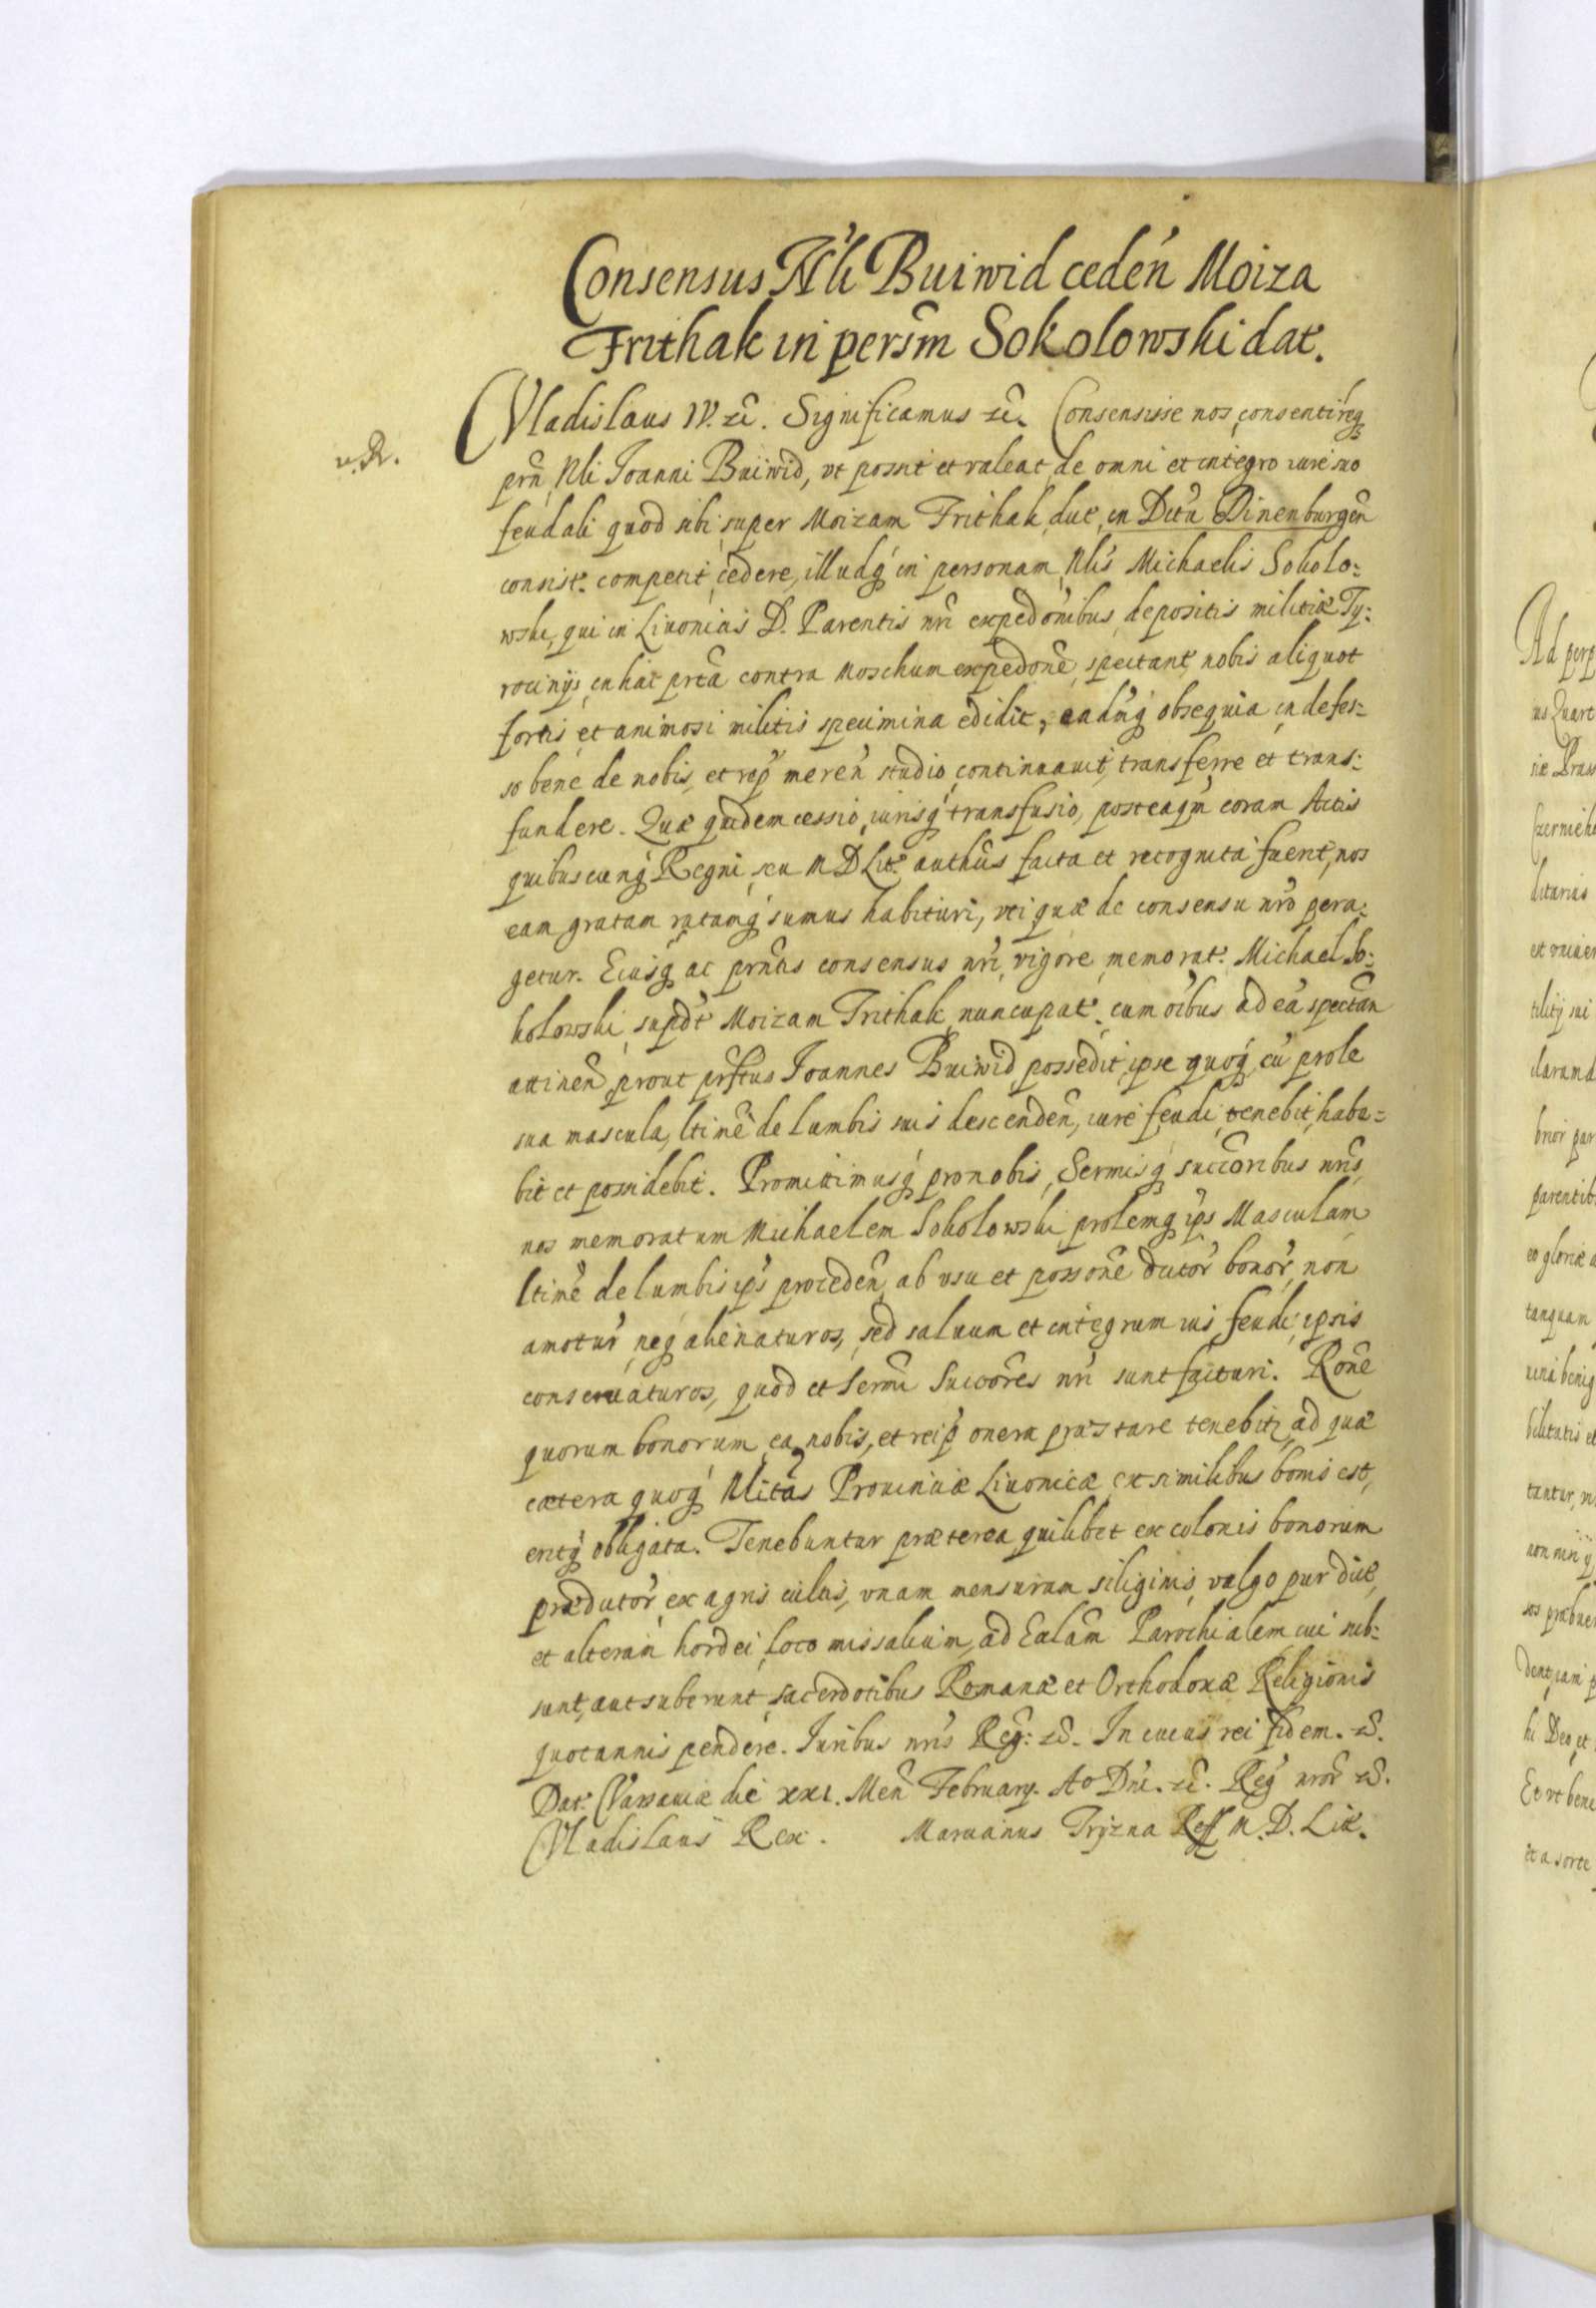 Consensus Nli Buiwid ceden Moiza
Frithak in persm Sokolowski dat.
Vladislaus IV. etc. Significamus etc. Consensisse nos, consentireq
n. R.
prn Nli Joanni Buiwid, vt possit et valeat de omni et integro iure suo
feudali quod sibi super Moizam Frithak dict in Dctu Dinenburgen
consist. competit cedere, illudq in personam Nlis Michaelis Sokolo:
wski, qui in Livonicis D. Parentis nri expedonibus depositis militiæ Ty:
rocinijs, in hac prta contra Moschum expedone, spectant nobis aliquot
fortis et animosi militis specimina edidit, eadmq obsequia indefes:
so bene de nobis, et rep meren studio continuauit, transferre et trans:
fundere. Quæ quidem cessio, iurisq transfusio, posteaqm coram Actis
quibuscunq Regni, seu M D Lit. authcis facta et recognita fuerit, nos
eam gratam ratamq sumus habituri, vti quæ de consensu nro pera:
getur. Eiusq ac prntis consensus nri vigore memorat. Michael So:
kolowski supdt Moizam Frithak nuncupat. cum oibus ad eã spectan
attinen prout prfatus Joannes Buiwid possedit, ipse quoq cũ prole
sua mascula, ltime de lumbis suis descenden, iure feudi tenebit, habe:
bit et possidebit. Promittimusq pro nobis, Sermisq succoribus nris,
nos memoratum Michaelem Sokolowski, prolemq ips Masculam
ltime de lumbis ips proceden, ab vsu et possone dictor bonor, non
amotur neq alienaturos, sed saluum et integrum ius feudi ipsis
conseruaturos, quod et Sermi Succores nri sunt facturi. Rone
quorum bonorum, ea nobis, et reip onera præstare tenebitr, ad quæ
cætera quoq Nlitas Prouinciæ Livonicæ ex similibus bonis est,
eritq obligata. Tenebuntur præterea quilibet ex colonis bonorum
prædictor, ex agris cultis, vnam mensuram siliginis, vulgo pur dict,
et alteram hordei, loco missalium, ad Eclam Parochialem cui sub:
sunt, aut suberunt, sacerdotibus Romanæ et Orthodoxæ Religionis
quotannis pendere. Iuribus nris Reg: etc. In cuius rei fidem. etc.
Dat. Varsauiæ die XXI. Men February. Ao Dni. etc. Reg nror etc.
Vladislaus Rex. Marcianus Tryzna Reff M. D. Lit.